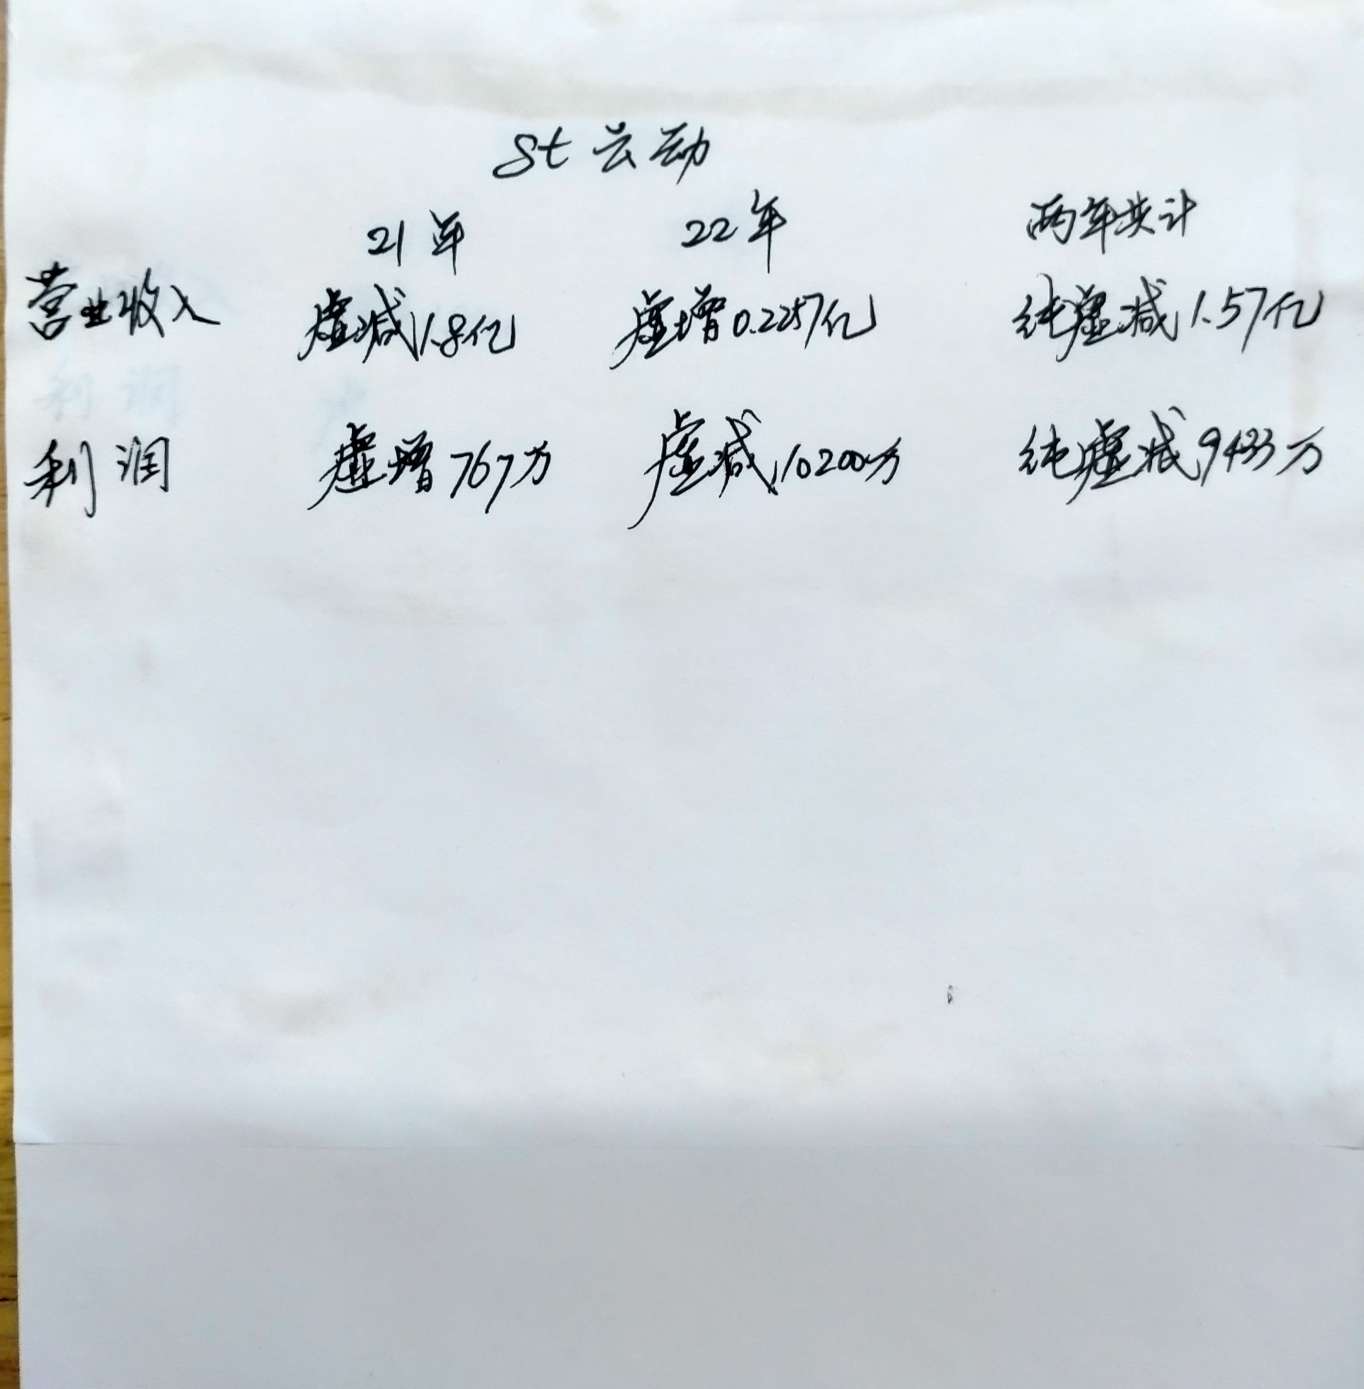 St 云动
21年 22年 两年共计
营业收入 虚减1.8亿 虚增0.2257亿 纯虚减1.57亿
利润 虚增767万 虚减10200万 纯虚减9433万